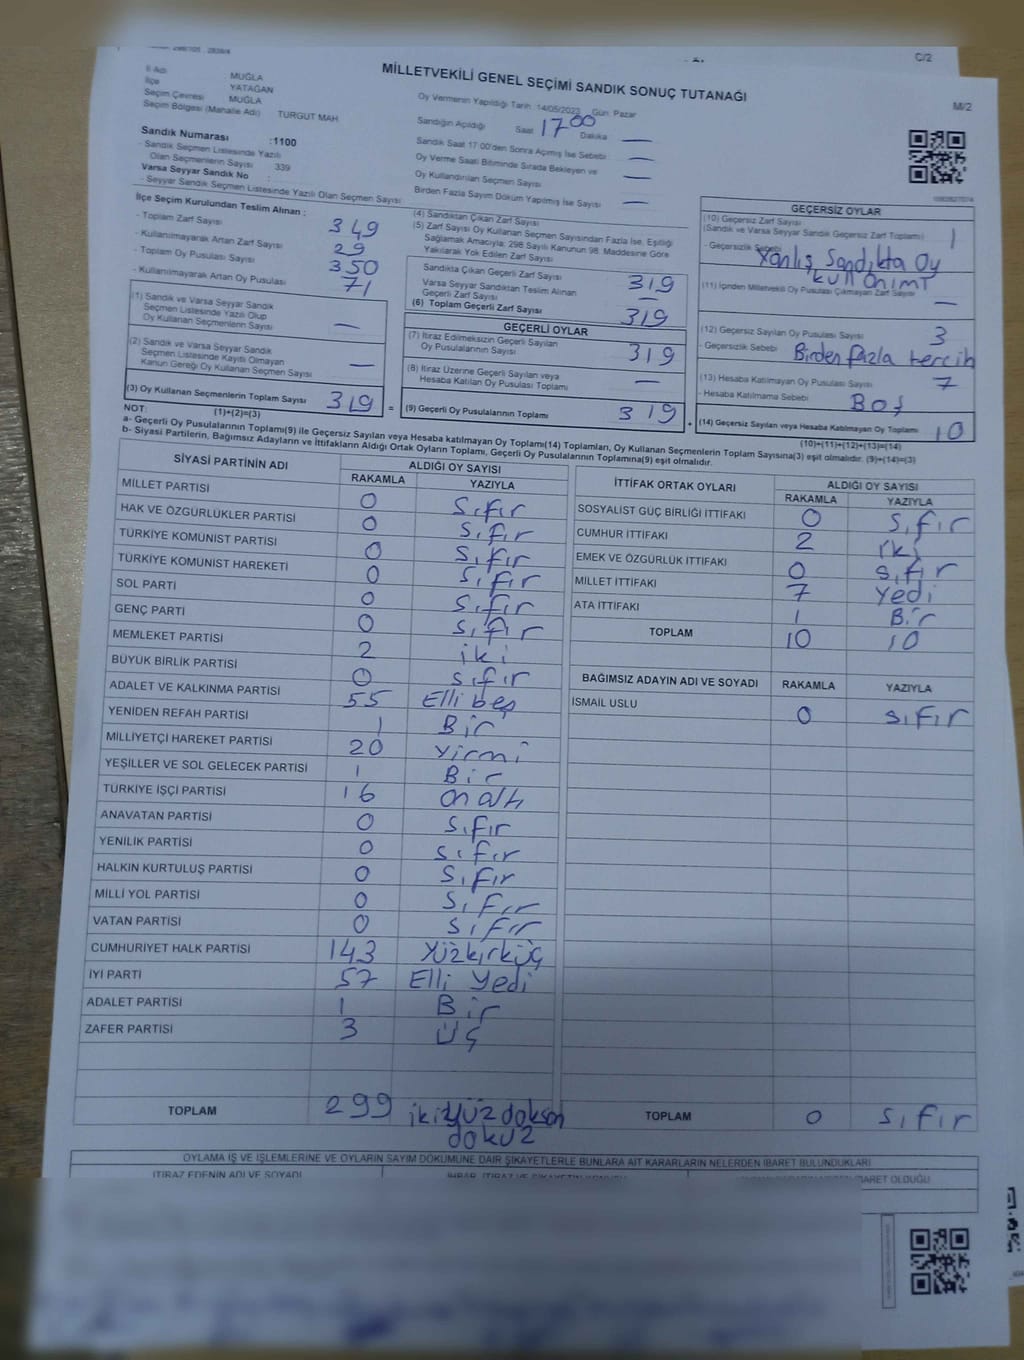 C/2
M/2
MİLLETVEKİLİ GENEL SEÇİMİ SANDIK SONUÇ TUTANAĞI
İl Adı : MUĞLA
İlçe : YATAĞAN
Seçim Çevresi : MUĞLA
Seçim Bölgesi (Mahalle Adı) : TURGUT MAH
Oy Vermenin Yapıldığı Tarih 14/05/2023 Gün: Pazar
Sandığın Açıldığı Saat 17 00 Dakika —
Sandık Saat 17:00'den Sonra Açılmış İse Sebebi —
Oy Verme Saati Bitiminde Sırada Bekleyen ve
Oy Kullandırılan Seçmen Sayısı —
Birden Fazla Sayım Döküm Yapılmış İse Sayısı —
Sandık Numarası :1100
- Sandık Seçmen Listesinde Yazılı
Olan Seçmenlerin Sayısı 339
Varsa Seyyar Sandık No :
- Seyyar Sandık Seçmen Listesinde Yazılı Olan Seçmen Sayısı
İlçe Seçim Kurulundan Teslim Alınan :
- Toplam Zarf Sayısı 349
- Kullanılmayarak Artan Zarf Sayısı 29
- Toplam Oy Pusulası Sayısı 350
- Kullanılmayarak Artan Oy Pusulası 71
(1) Sandık ve Varsa Seyyar Sandık
Seçmen Listesinde Yazılı Olup
Oy Kullanan Seçmenlerin Sayısı —
(2) Sandık ve Varsa Seyyar Sandık
Seçmen Listesinde Kayıtlı Olmayan
Kanun Gereği Oy Kullanan Seçmen Sayısı —
(3) Oy Kullanan Seçmenlerin Toplam Sayısı 319
(1)+(2)=(3)
(4) Sandıktan Çıkan Zarf Sayısı
(5) Zarf Sayısı Oy Kullanan Seçmen Sayısından Fazla İse, Eşitliği
Sağlamak Amacıyla; 298 Sayılı Kanunun 98. Maddesine Göre
Yakılarak Yok Edilen Zarf Sayısı
Sandıkta Çıkan Geçerli Zarf Sayısı 319
Varsa Seyyar Sandıktan Teslim Alınan
Geçerli Zarf Sayısı —
(6) Toplam Geçerli Zarf Sayısı 319
GEÇERLİ OYLAR
(7) İtiraz Edilmeksizin Geçerli Sayılan
Oy Pusulalarının Sayısı 319
(8) İtiraz Üzerine Geçerli Sayılan veya
Hesaba Katılan Oy Pusulası Toplamı —
= (9) Geçerli Oy Pusulalarının Toplamı 319
GEÇERSİZ OYLAR
(10) Geçersiz Zarf Sayısı
(Sandık ve Varsa Seyyar Sandık Geçersiz Zarf Toplamı) 1
- Geçersizlik Sebebi Yanlış Sandıkta Oy
kullanımı
(11) İçinden Milletvekili Oy Pusulası Çıkmayan Zarf Sayısı —
(12) Geçersiz Sayılan Oy Pusulası Sayısı 3
- Geçersizlik Sebebi Birden fazla tercih
(13) Hesaba Katılmayan Oy Pusulası Sayısı 7
- Hesaba Katılmama Sebebi Boş
+ (14) Geçersiz Sayılan veya Hesaba Katılmayan Oy Toplamı 10
(10)+(11)+(12)+(13)=(14)
NOT:
a- Geçerli Oy Pusulalarının Toplamı(9) ile Geçersiz Sayılan veya Hesaba katılmayan Oy Toplamı(14) Toplamları, Oy Kullanan Seçmenlerin Toplam Sayısına(3) eşit olmalıdır. (9)+(14)=(3)
b- Siyasi Partilerin, Bağımsız Adayların ve İttifakların Aldığı Ortak Oyların Toplamı, Geçerli Oy Pusulalarının Toplamına(9) eşit olmalıdır.
SİYASİ PARTİNİN ADI ALDIĞI OY SAYISI
RAKAMLA YAZIYLA
MİLLET PARTİSİ 0 Sıfır
HAK VE ÖZGÜRLÜKLER PARTİSİ 0 Sıfır
TÜRKİYE KOMÜNİST PARTİSİ 0 Sıfır
TÜRKİYE KOMÜNİST HAREKETİ 0 Sıfır
SOL PARTİ 0 Sıfır
GENÇ PARTİ 0 Sıfır
MEMLEKET PARTİSİ 2 iki
BÜYÜK BİRLİK PARTİSİ 0 sıfır
ADALET VE KALKINMA PARTİSİ 55 Elli beş
YENİDEN REFAH PARTİSİ 1 Bir
MİLLİYETÇİ HAREKET PARTİSİ 20 yirmi
YEŞİLLER VE SOL GELECEK PARTİSİ 1 Bir
TÜRKİYE İŞÇİ PARTİSİ 16 on altı
ANAVATAN PARTİSİ 0 Sıfır
YENİLİK PARTİSİ 0 sıfır
HALKIN KURTULUŞ PARTİSİ 0 Sıfır
MİLLİ YOL PARTİSİ 0 Sıfır
VATAN PARTİSİ 0 sıfır
CUMHURİYET HALK PARTİSİ 143 Yüzkırküç
İYİ PARTİ 57 Elli Yedi
ADALET PARTİSİ 1 Bir
ZAFER PARTİSİ 3 üç
TOPLAM 299 ikiyüz doksan
dokuz
İTTİFAK ORTAK OYLARI ALDIĞI OY SAYISI
RAKAMLA YAZIYLA
SOSYALİST GÜÇ BİRLİĞİ İTTİFAKI 0 Sıfır
CUMHUR İTTİFAKI 2 iki
EMEK VE ÖZGÜRLÜK İTTİFAKI 0 sıfır
MİLLET İTTİFAKI 7 Yedi
ATA İTTİFAKI 1 Bir
TOPLAM 10 10
BAĞIMSIZ ADAYIN ADI VE SOYADI RAKAMLA YAZIYLA
İSMAİL USLU 0 sıfır
TOPLAM 0 sıfır
OYLAMA İŞ VE İŞLEMLERİNE VE OYLARIN SAYIM DÖKÜMÜNE DAİR ŞİKAYETLERLE BUNLARA AİT KARARLARIN NELERDEN İBARET BULUNDUKLARI
İTİRAZ EDENİN ADI VE SOYADI